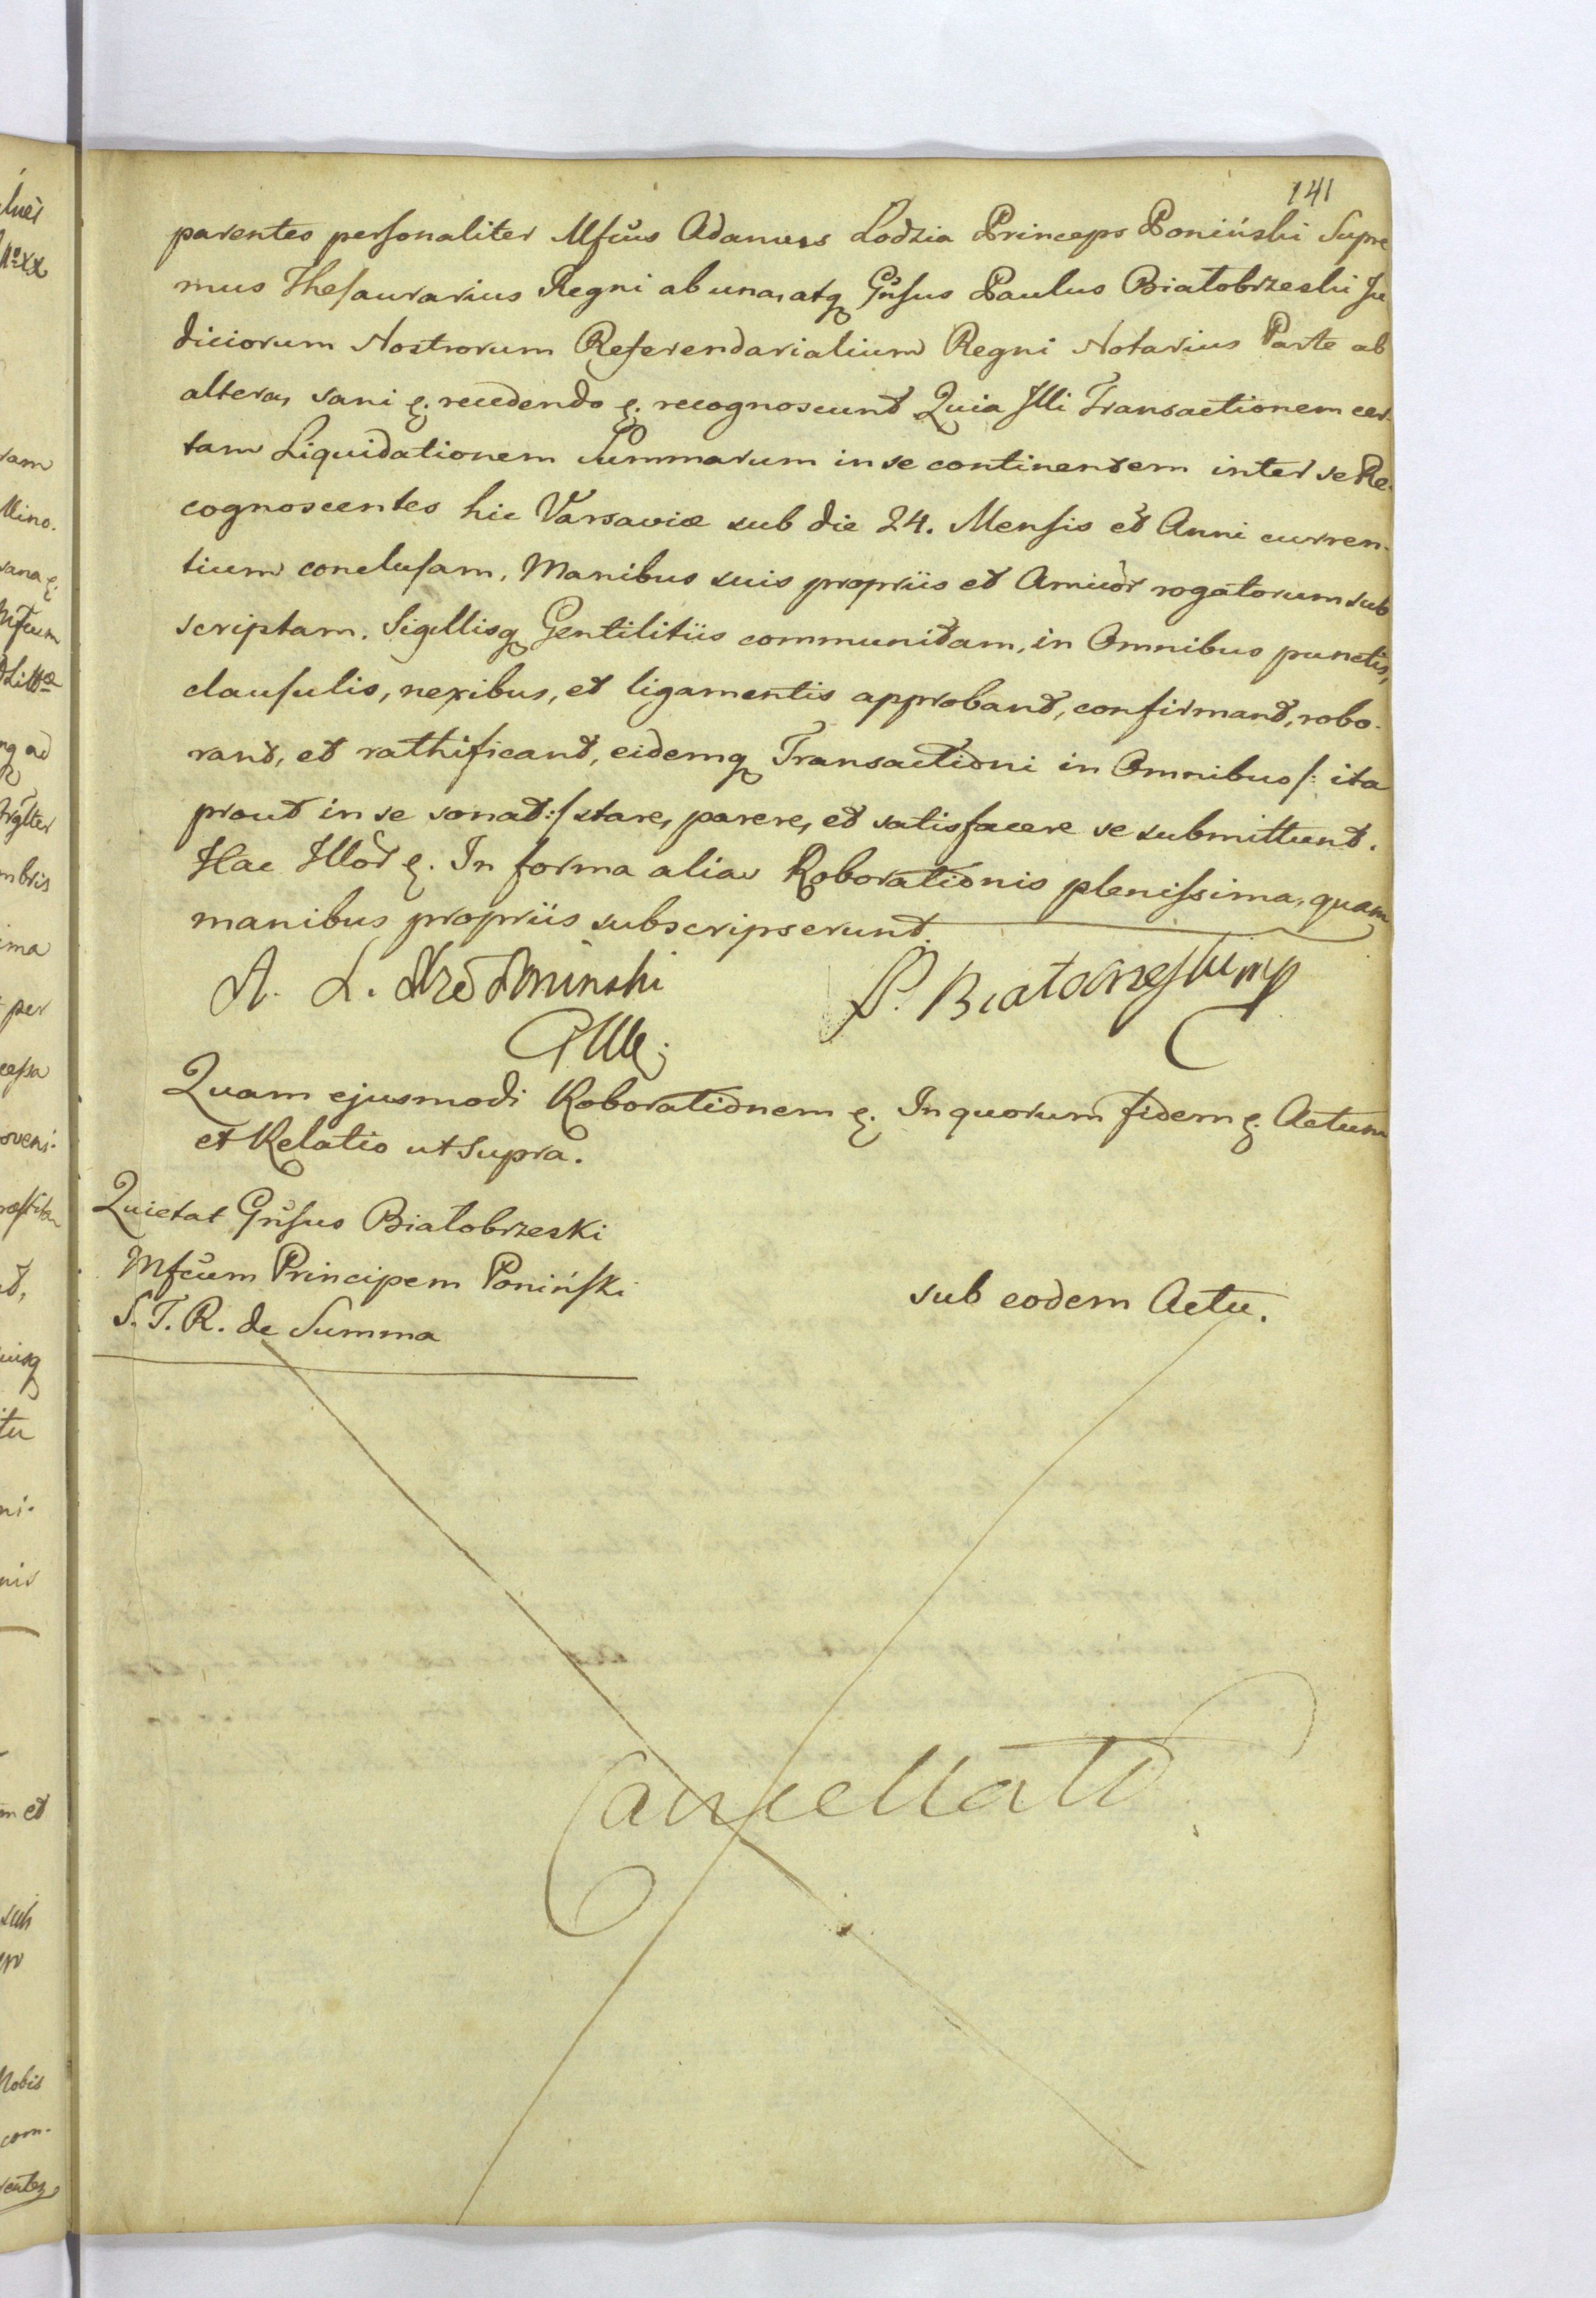 141
parentes personaliter Mfcus Adamus Lodzia Princeps Poniński Supre
mus Thesaurarius Regni ab una, atq Gnsus Paulus Białobrzeski Ju
diciorum Nostrorum Referendarialium Regni Notarius Parte ab
altera, sani &. recedendo &. recognoscunt Quia Illi Transactionem cer-
tam Liquidationem Summarum in se continentem inter se Re-
cognoscentes hic Varsaviæ sub die 24. Mensis et Anni curren-
tium conclusam, Manibus suis propriis et Amicor rogatorum sub
scriptam. Sigillisq Gentilitiis communitam, in Omnibus punctis,
clausulis, nexibus, et ligamentis approbant, confirmant, robo-
rant, et rathificant, eidemq Transactioni in Omnibus /: ita
prout in se sonat :/ stare, parere, et satisfacere se submittunt.
Hac Illor &. In forma alia Roborationis plenissima, quam
manibus propriis subscripserunt.
A. L. Poninski
P. Białobrzeski mp
Quam ejusmodi Roborationem &. In quorum fidem &. Actum
et Relatio ut supra.
Quietat Gnsus Białobrzeski
Mfcum Principem Poniński
S. T. R. de Summa
sub eodem Actu.
Cancellat